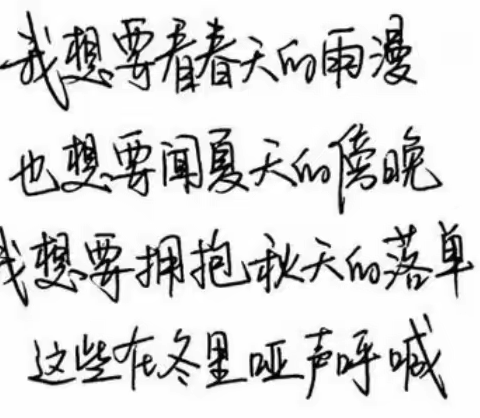 我想要看春天的雨漫
也想要闻夏天的傍晚
我想要拥抱秋天的落单
这些在冬里哑声呼喊